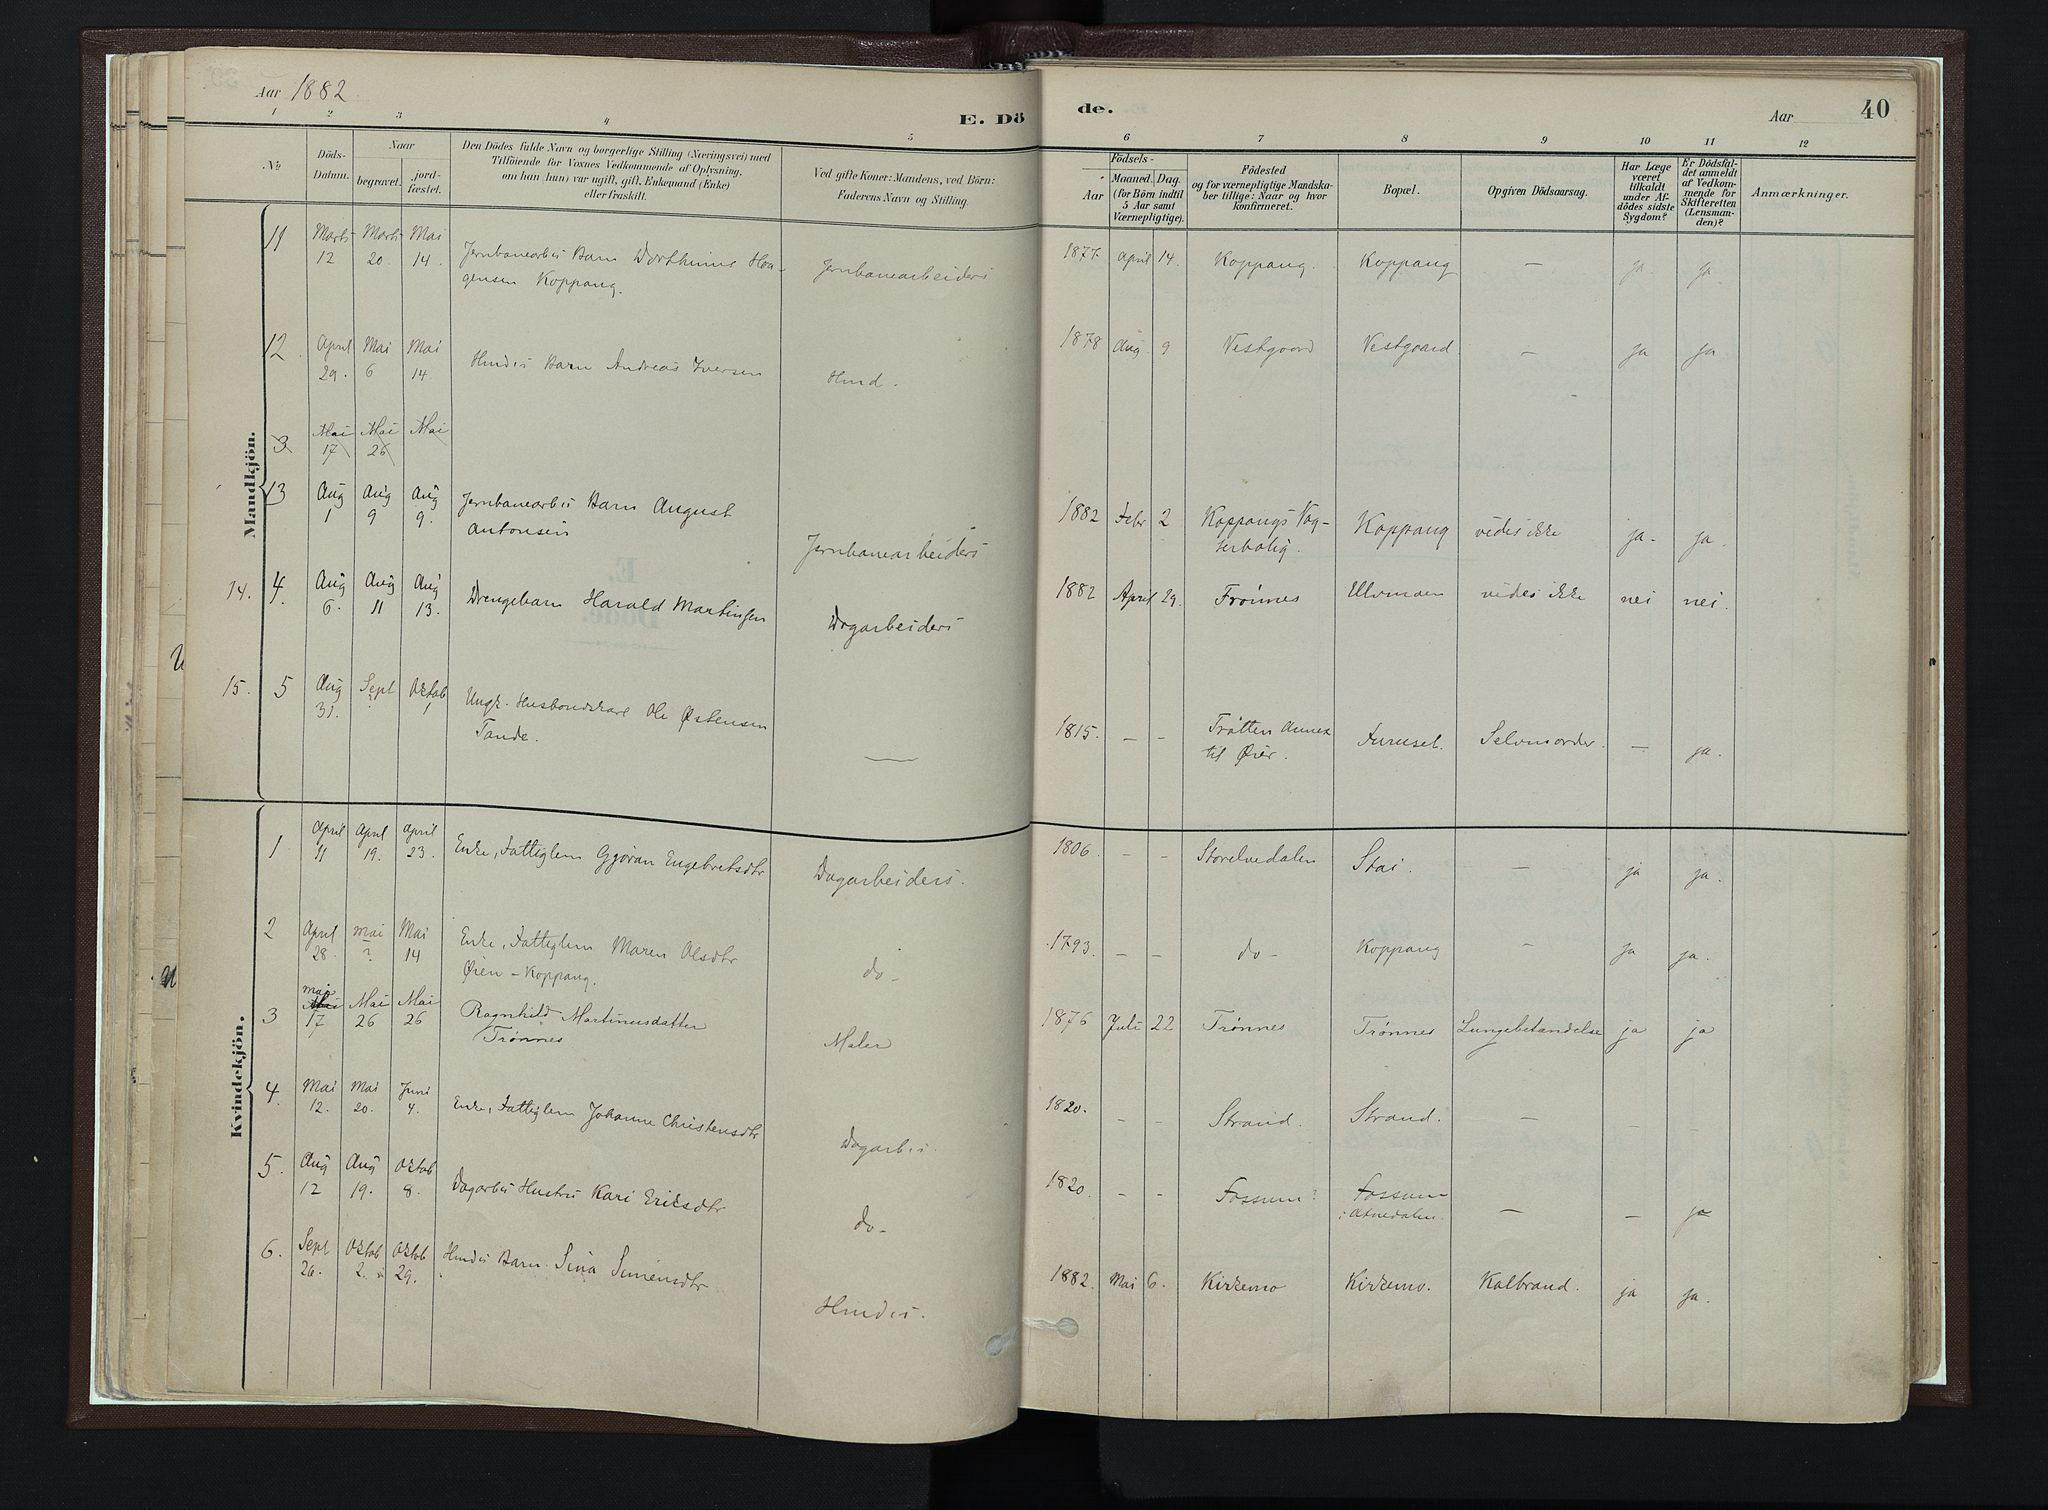 Aar 1882
E. Dö
de.
Aar
40
1 2 3 4 5 6 7 8 9 10 11 12
No
Döds-
Datum.
Naar
begravet.
jord-
fæstet.
Den Dödes fulde Navn og borgerlige Stilling (Næringsvei) med
Tilföiende for Voxnes Vedkommende af Oplysning,
om han (hun) var ugift, gift, Enkemand (Enke)
eller fraskilt.
Ved gifte Koner: Mandens, ved Börn:
Faderens Navn og Stilling.
Födsels-
Aar
Maaned. Dag.
(for Börn indtil
5 Aar samt
Værnepligtige).
Födested
og for værnepligtige Mandska-
ber tillige: Naar og hvor
konfirmeret.
Bopæl.
Opgiven Dödsaarsag.
Har Læge
været
tilkaldt
under Af-
dödes sidste
Sygdom?
Er Dödsfal-
det anmeldt
af Vedkom-
mende for
Skifteretten
(Lensman-
den)?
Anmærkninger.
Mandkjön.
11 Marts 12 Marts 20. Mai 14. Jernbanearbs Barn Dorthinus Haa-
gensen Koppang. Jernbanearbeiders 1877. April 14. Koppang. Koppang — ja ja.
12. April 29. Mai 6 Mai 14. Hmds Barn Andreas Iversen Hmd. 1878 Aug. 9 Vestgaard Vestgaard. — ja ja
3 Mai 17 Mai 26 Mai
13 Aug 1 Aug 9 Aug 9. Jernbanearb.s Barn August
Antonsen Jernbanearbeiders 1882 Febr 2 Koppangs Vog-
terbolig. Koppang vides ikke ja. ja.
14. 4. Aug 6. Aug 11 Aug 13. Drengebarn Harald Martinsen Dagarbeiders 1882 April 29. Trønnes Ulvmoen vides ikke nei nei.
15. 5 Aug 31. Sept Oktob 1 Ungk. Husbondskarl Ole Østensen
Tande. — 1815. — - Trøtten Annex
til Øier. Furuset. Selvmorder. — ja.
Kvindekjön.
1 April 11 April 19. April 23. Enke, Fattiglem Gjøran Engebretsdtr Dagarbeiders. 1806. — - Storelvedalen Stai. — ja ja.
2 April 28. Mai ? Mai 14 Enke, Fattiglem Maren Olsdtr
Øien - Koppang. do - 1793. — - do - Koppang - ja ja.
3 Mai 17 Mai 26 Mai 26 Ragnhild Martinusdatter
Trønnes Maler 1876 Juli 22 Trønnes Trønnes Lungebetændelse ja ja
4. Mai 12. Mai 20. Juni 4. Enke, Fattiglem Johanne Christensdtr Dagarb.s. 1820. - - Strand. Strand. — - -
5. Aug 12 Aug 19. Oktob 8. Dagarbs Hustru Kari Eriksdtr do - 1820. - - Fossum? Fossum
i Atnedalen. — — ja
6. Sept 26. Oktob 2. Oktob 29. Hmds Barn. Sina Simensdtr Hmds. 1882. Mai 6. Kirkemo Kirkemo. Kolbrand. ja ja.